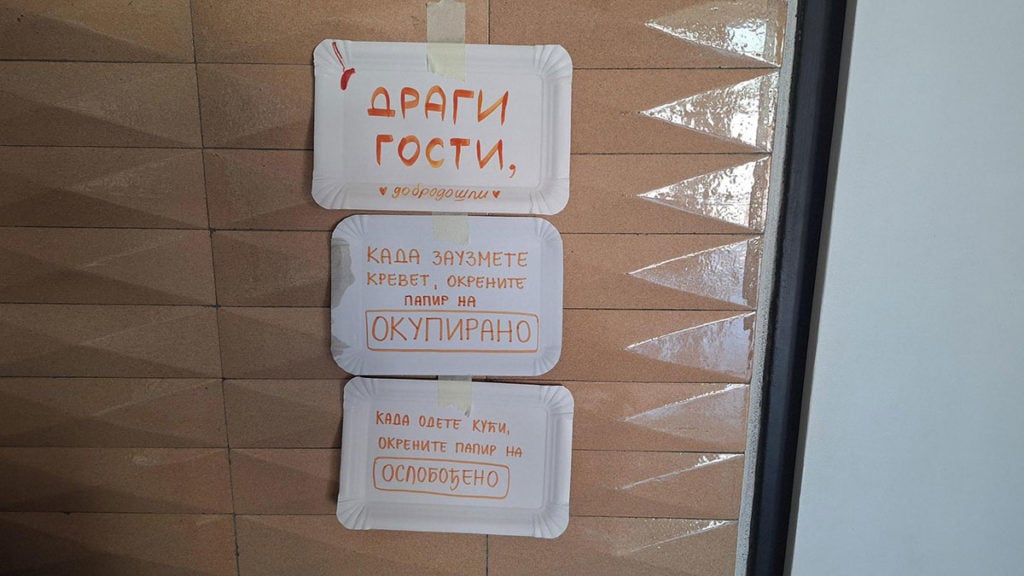 ДРАГИ
ГОСТИ,
♥ добродошли ♥
КАДА ЗАУЗМЕТЕ
КРЕВЕТ, ОКРЕНИТЕ
ПАПИР НА
ОКУПИРАНО
КАДА ОДЕТЕ КУЋИ,
ОКРЕНИТЕ ПАПИР НА
ОСЛОБОЂЕНО